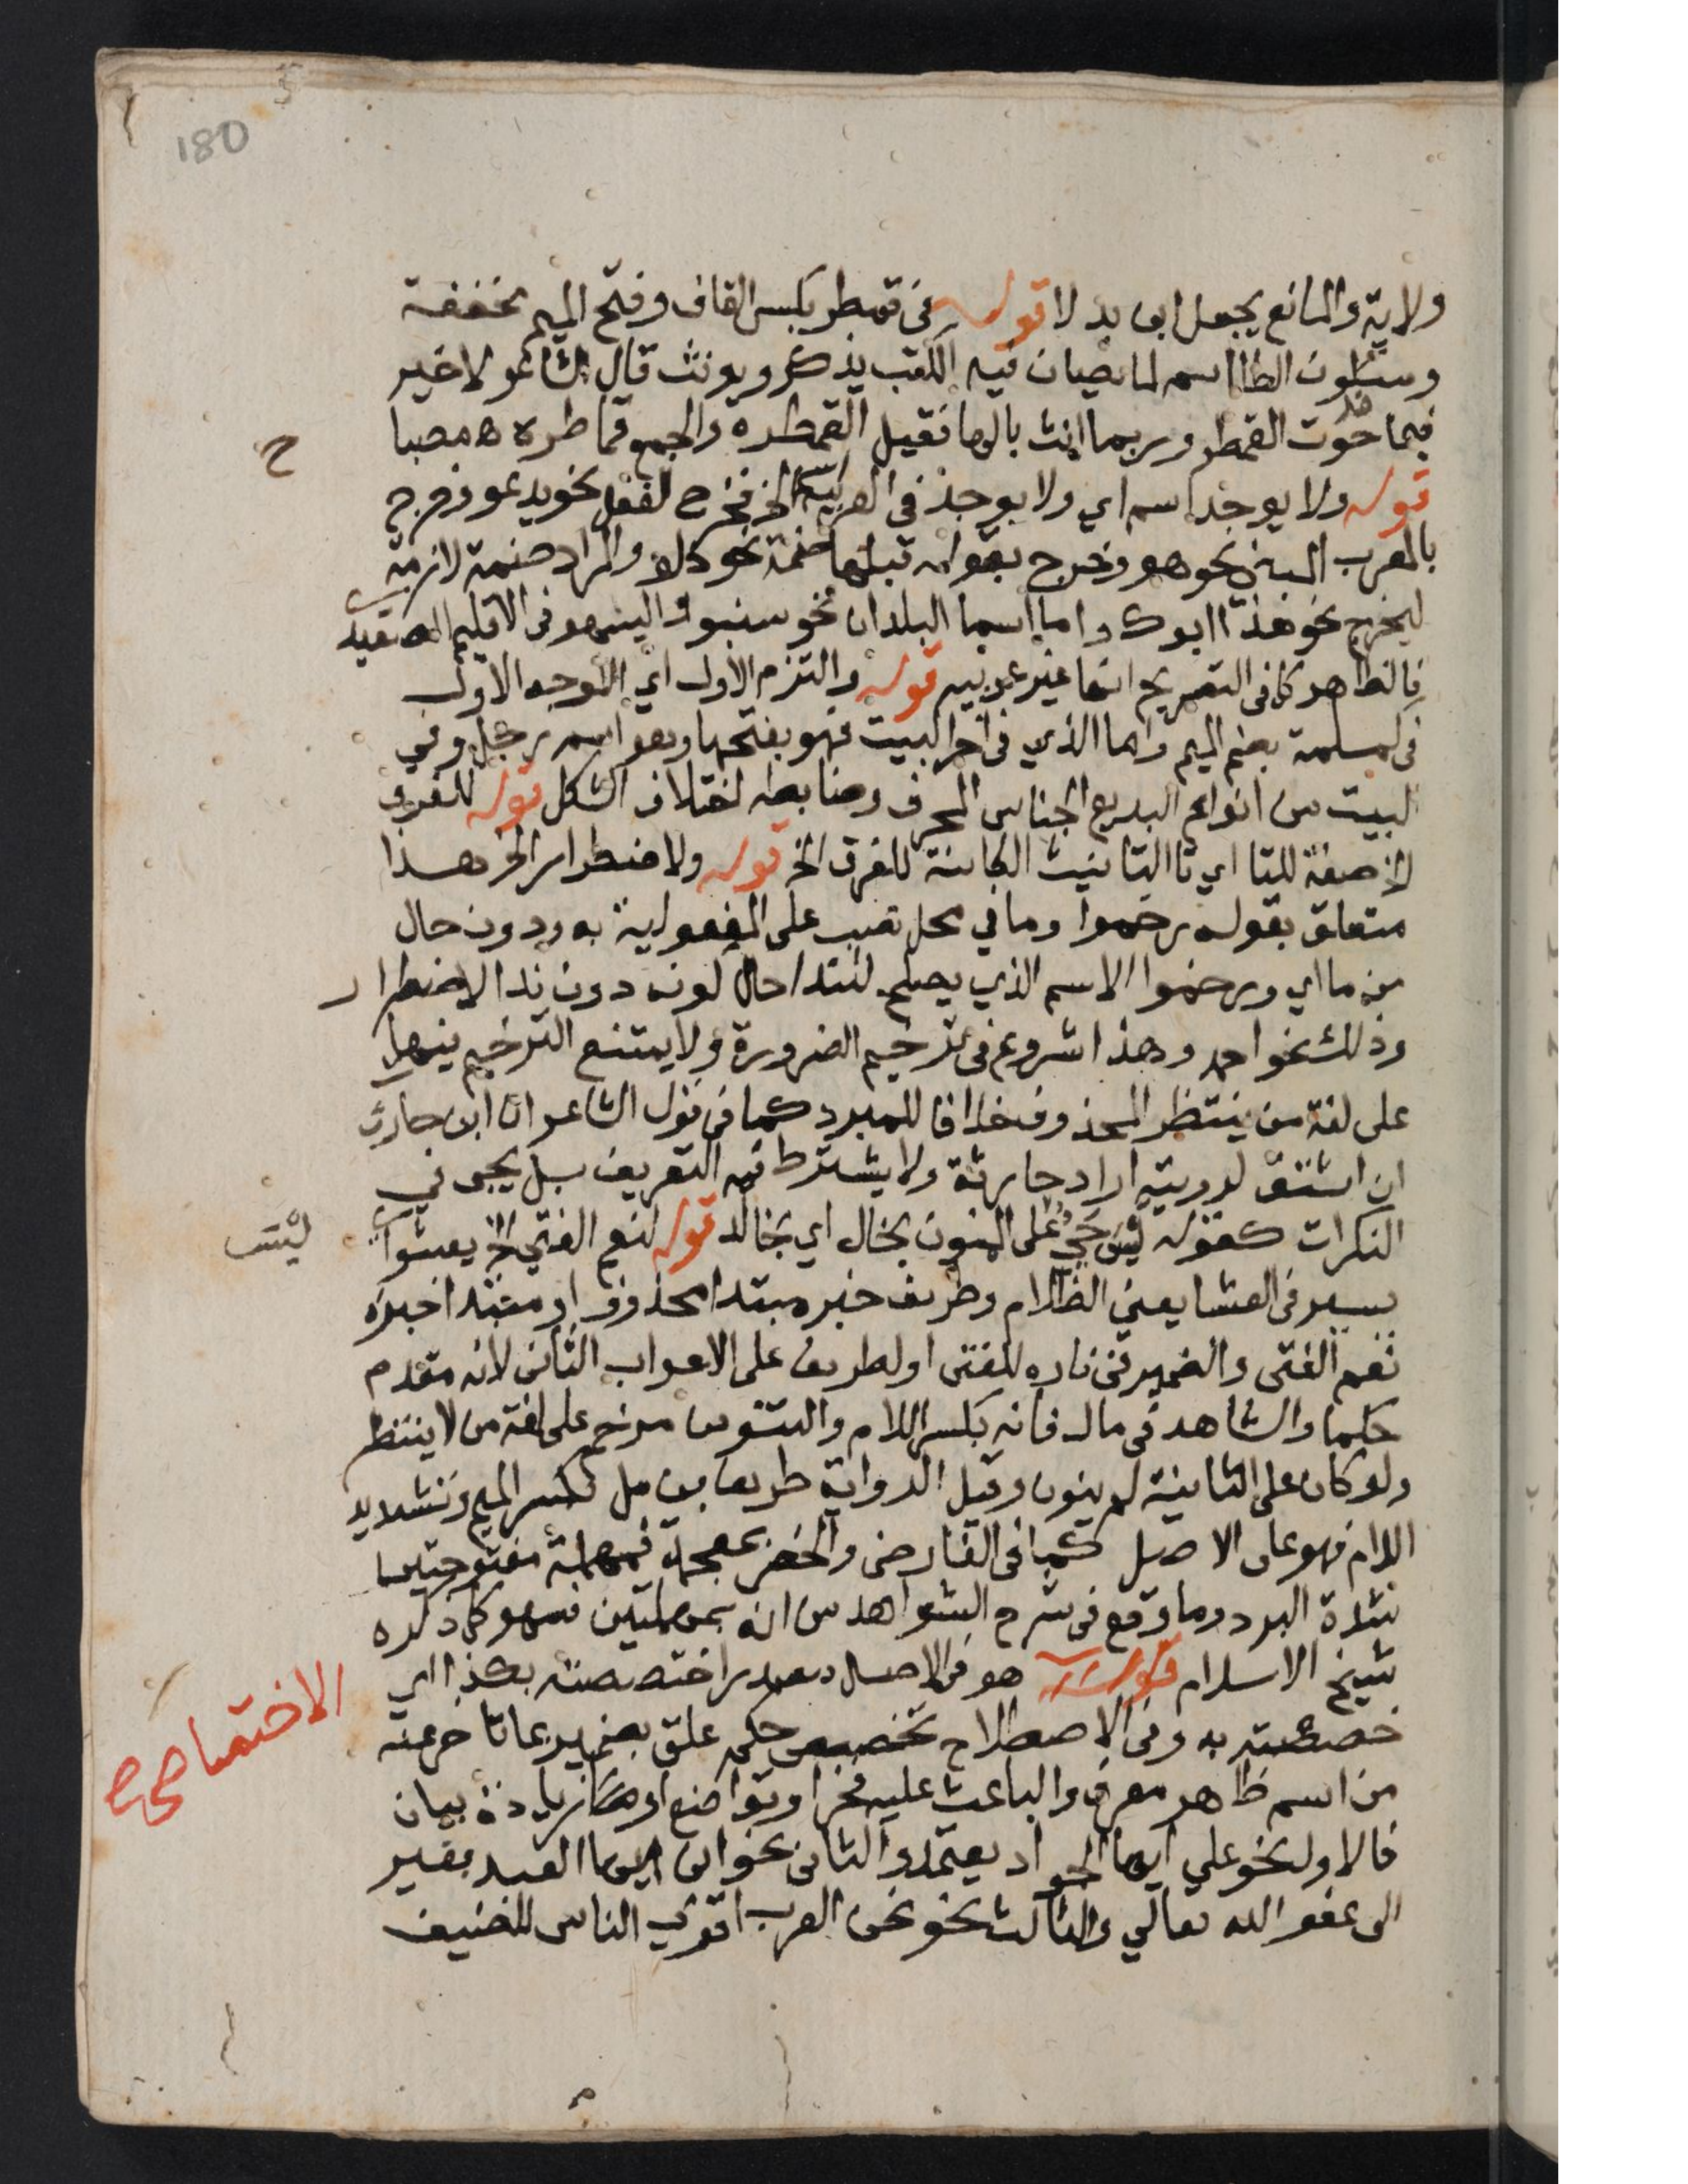 180
ولاية والمانع يجعل ابى بدلا قوله فى قمطر بكسر القاف وفتح الميم مخففة
وسكون الطا اسم لما يصان فيه الكتب يذكر ويونث قال الشاعر لا خير
فيما حوت القمطر وربما انث بالها فقيل القمطره والجمع قماطره ه مصبا
قوله ولا يوجد اسم اي ولا يوجد فى العربية الخ فخرج الفعل نحو يدعو وخرج
بالمعرب المبنى نحو هو وخرج بقوله قبلها ضمة نحو دلو والمراد ضمة لازمة
ليخرج نحو هذا ابوك واما اسما البلدان نحو سنبوا والينهو فى الاقليم الصعيد
فالظاهر كما فى التصريح انها غير عربيه قوله والتزم الاول اي الوجه الاول
فى كمسلمة بضم الميم واما الذي فى اخر البيت فهو بفتحها وهو اسم رجل وفي
البيت من انواع البديع الجناس المحرف وضابطه اختلاف الشكل قوله للفرق
الخ صفة للتا اي تا التانيث الكائنة للفرق الخ قوله ولاضطرار الخ هذا
متعلق بقوله رخموا وما في محل نصب على المفعولية به ودون حال
من ما اي ورخموا الاسم الذي يصلح للندا حال كونه دون ندا لاضطرار
وذلك نحو احمد وهذا شروع فى ترخيم الضرورة ولا يمتنع الترخيم فيها
على لغة من ينتظر المحذوف خلافا للمبرد كما فى قول الشاعر ان ابن حارث
ان اشتق لرويته اراد حارثة ولا يشترط فيه التعريف بل يجى في
النكرات كقوله ليس حي على المنون بخال اي بخالد قوله لنعم الفتى الخ يعشوا
ليس
يسير فى العشا يعني الظلام وطريف خبر مبتدا محذوف او مبتدا خبره
نعم الفتى والضمير فى ناره للفتى او لطريف على الاعراب الثانى لانه مقدم
حكما والشاهد فى مال فانه بكسر اللام والتنوين مرخم على لغة من لا ينتظر
ولو كان على الثانية لم ينون وقيل الرواية طريف بن مل بكسر الميم وتشديد
اللام فهو على الاصل كما فى الفارضى والخصر بمعجمة فمهملة مفتوحتين
شدة البرد وما وقع فى شرح الشواهد من انه بمهملتين فسهو كما ذكره
شيخ الاسلام قوله هو فى الاصل مصدر اختصصته بكذا اي
الاختصاص
خصصته به وفى الاصطلاح تخصيص حكم علق بضمير بما تاخر عنه
من اسم ظاهر معرف والباعث عليه فخر او تواضع او زيادة بيان
فالاول نحو علي ايها الجواد يعتمد والثانى نحو انى ايها العبد فقير
الى عفو الله تعالي والثالث نحو نحن العرب اقري الناس للضيف